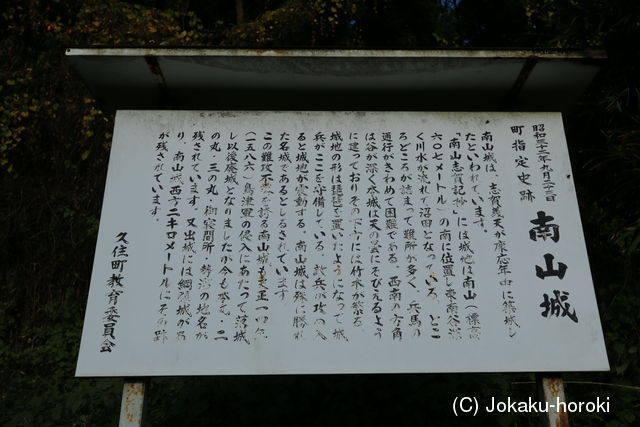 昭和三十二年九月二十二日
町指定史跡
南山城
南山城は、志賀義天が慶応年中に築城し
たといわれています。
「南山志賀記抄」には城地は南山(標高
六〇七メートル)の南に位置し東南谷深
く川水が流れて沼田となっている。とこ
ろどころが詰まって難所が多く、兵馬の
通行がきわめて困難である。西南の方角
は谷が深く本城は天の半にそびえるよう
に建っておりその下方には竹木が繁る。
城地の形は琵琶を置いたようになって城
兵がここを守備している。敵兵が攻め入
ると城地が震動する。南山城は殊に勝れ
た名城であるとしるされています。
この難攻不落を誇る南山城も天正一四年
(一五八六)島津軍の侵入にあたって落城
し以後廃城となりましたが今も本丸・二
の丸・三の丸・御寝間所・勢溜の地名が
残されています。又出城には綱領城があ
り、南山城西方二キロメートルにその跡
が残されています。
久住町教育委員会
(C) Jokaku-horoki